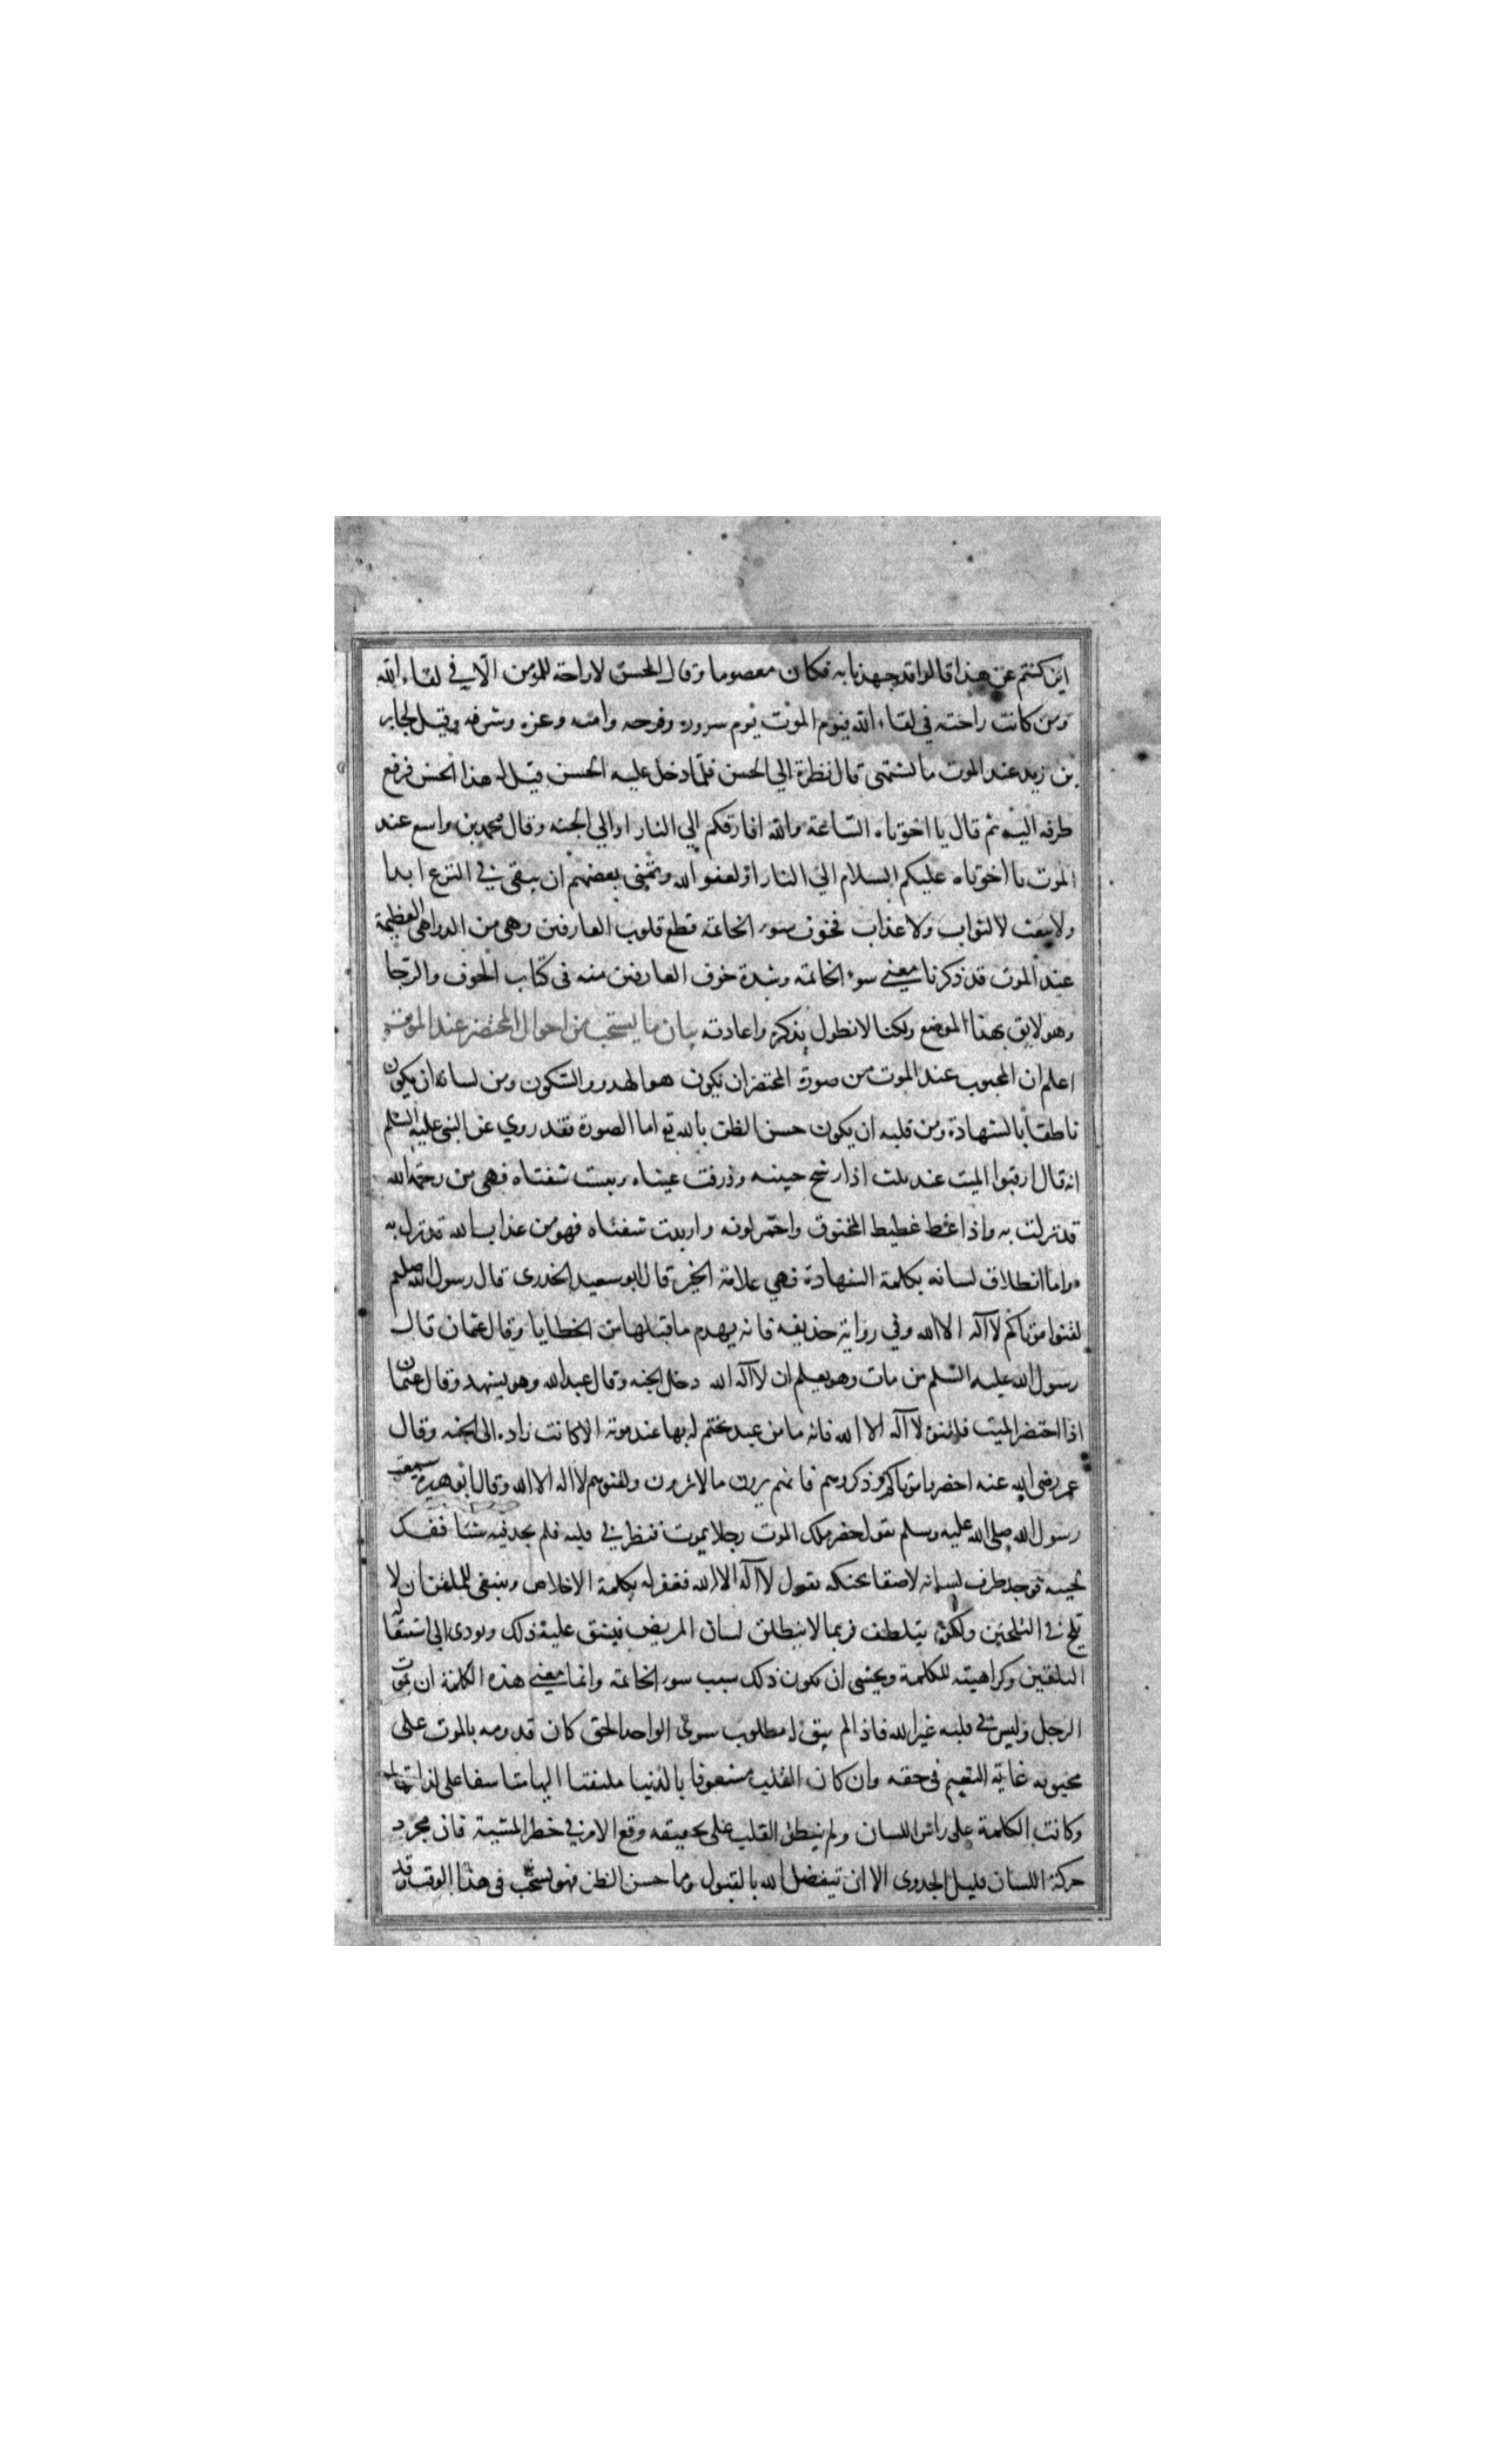 اين كنتم عن هذا قالوا قد جهدنا به فكان معصوما وقال الحسن لا راحة للمؤمن الا في لقاء الله
ومن كانت راحته في لقاء الله فيوم الموت يوم سروره وفرحه وامنه وعزه وشرفه وقيل لجابر
بن زيد عند الموت ما تشتهى قال نظرة الي الحسن فلما دخل عليه الحسن قيل له هذا الحسن فرفع
طرفه اليه ثم قال يا اخوتاه الساعة والله افارقكم الي النار او الي الجنه وقال محمد بن واسع عند
الموت يا اخوتاه عليكم السلام الي النار او لعفو الله وتمنى بعضهم ان يبقى في النزع ابدا
ولا يبعث لا لثواب ولا عذاب فخوف سوء الخاتمة قطع قلوب العارفين وهي من الدواهى العظيمة
عند الموت قد ذكرنا معني سوء الخاتمه وشدة خوف العارفين منه في كتاب الخوف والرجا
وهو لايق بهذا الموضع ولكنا لا نطول بذكره واعادته بيان ما يستحب من احوال المحتضر عند الموت
اعلم ان المحبوب عند الموت من صورة المحتضر ان يكون هو الهدو والسكون ومن لسانه ان يكون
ناطقا بالشهادة ومن قلبه ان يكون حسن الظن بالله تع اما الصورة فقد روي عن النبي عليه السلم
انه قال ارقبوا الميت عند ثلث اذا رشح جبينه وذرفت عيناه ويبست شفتاه فهى من رحمة الله
قد نزلت به واذا غط غطيط المخنوق واحمر لونه واربدت شفتاه فهو من عذاب الله قد نزل به
واما انطلاق لسانه بكلمة الشهادة فهي علامة الخير قال ابو سعيد الخدرى قال رسول الله صلعم
لقنوا موتاكم لا آله الا الله وفي رواية حذيفه فانه يهدم ما قبلها من الخطايا وقال عثمان قال
رسول الله عليه السلم من مات وهو يعلم ان لا آله الله دخل الجنه وقال عبد الله وهو يشهد وقال عثمان
اذا احتضر الميت فلقنوه لا آله الا الله فانه ما من عبد يختم له بها عند موته الا كانت زاده الى الجنه وقال
عمر رضى الله عنه احضروا موتاكم وذكروهم فانهم يرون ما لا ترون ولقنوهم لا اله الا الله وقال ابو هريرة سمعت
رسول الله صلى الله عليه وسلم يقول حضر ملك الموت رجلا يموت فنظر في قلبه فلم يجد فيه شئا ففك
لحييه فوجد طرف لسانه لاصقا بحنكه يقول لا آله الا الله فغفر له بكلمة الاخلاص وينبغى للملقن ان لا
يلح في التلقين ولكن يتلطف فربما لا ينطلق لسان المريض فيشق عليه ذلك ويودى الي استثقاله
التلقين وكراهيته للكلمة ويخشى ان يكون ذلك سبب سوء الخاتمة وانما معني هذه الكلمة ان يموت
الرجل وليس في قلبه غير الله فاذا لم يبق له مطلوب سوى الواحد الحق كان قدومه بالموت على
محبوبه غاية النعيم في حقه وان كان القلب مشعوفا بالدنيا ملتفتا اليها متاسفا على لذاتها
وكانت الكلمة على راس اللسان ولم ينطق القلب على تحقيقه وقع الامر في خطر المشية فان مجرد
حركة اللسان قليل الجدوى الا ان تيفضل الله بالقبول وما حسن الظن فهو يستحب في هذا الوقت وقد